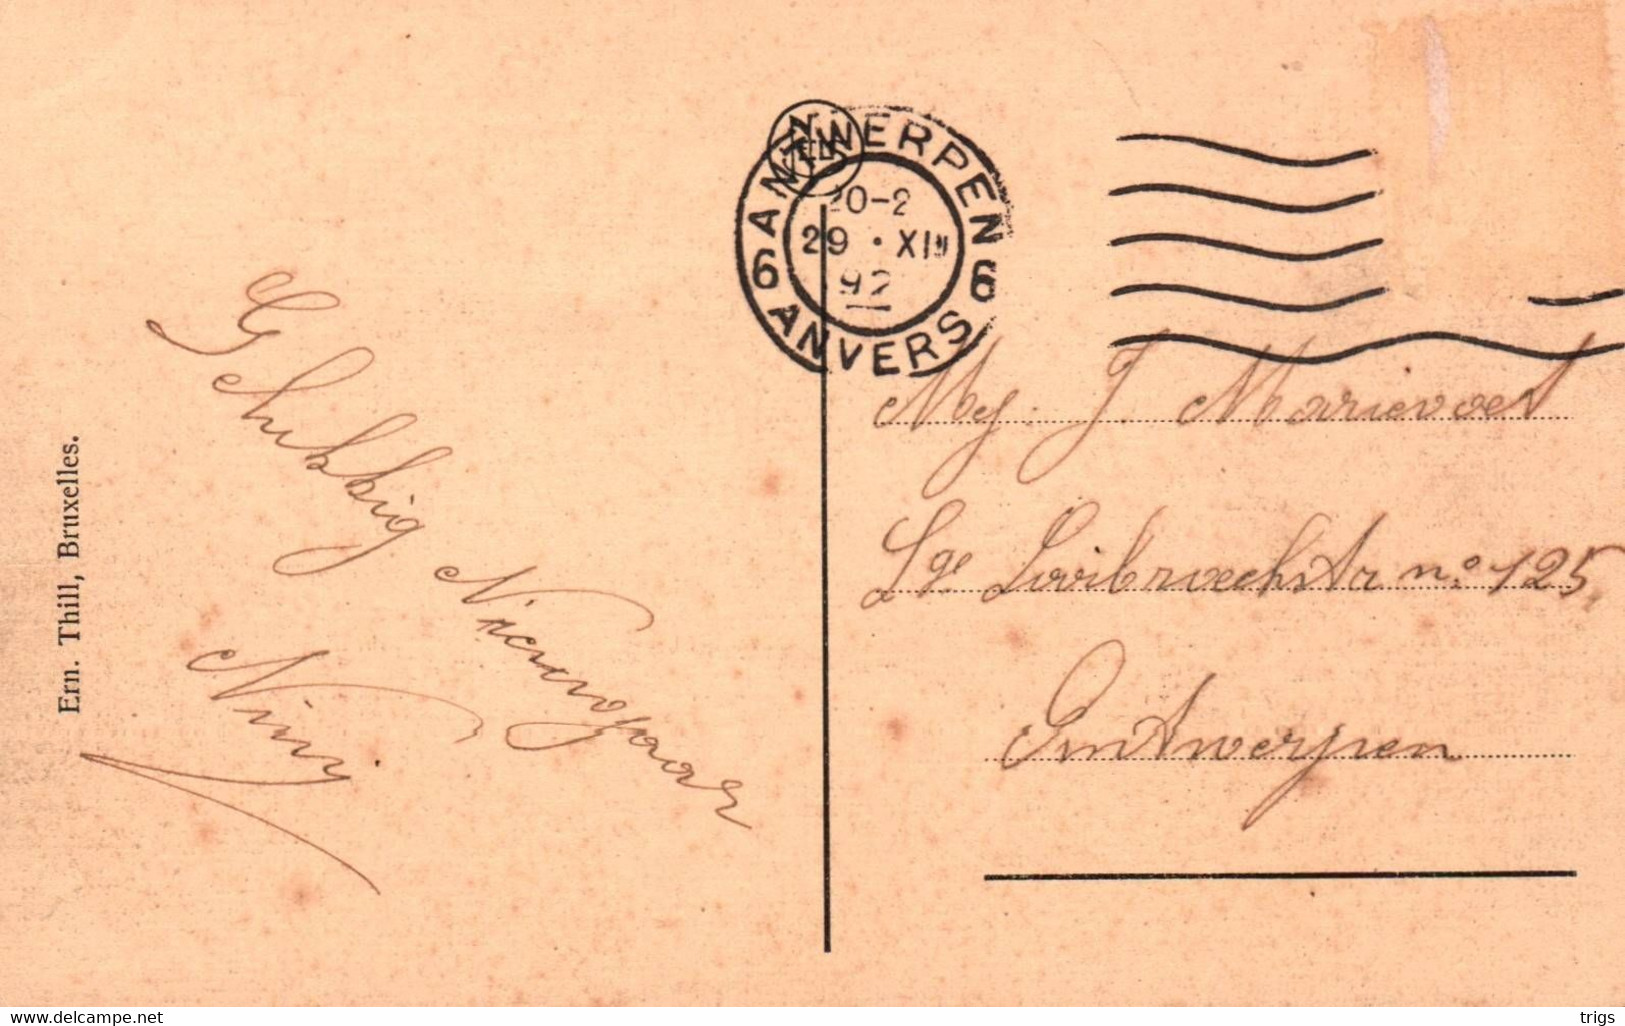 Ern. Thill, Bruxelles.
Gelukkig
Nieuwjaar
Niny
ANTWERPEN
NELS
20-2
29 • XII
92
6 6
ANVERS
Mej. J. Marievoet
Lge Lobroechstr n° 125
Antwerpen
www.delcampe.net
trigs